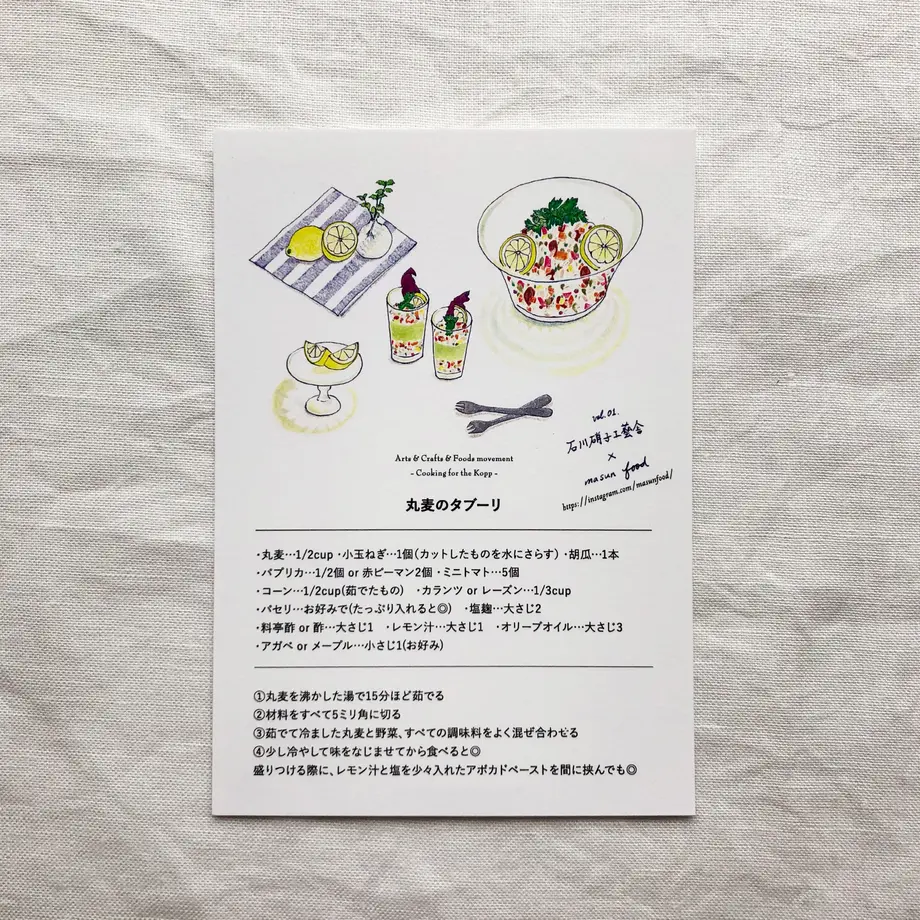 vol.01.
石川硝子工藝舎
×
masun food
https://instagram.com/masunfood/
Arts & Crafts & Foods movement
- Cooking for the Kopp -
丸麦のタブーリ
・丸麦…1/2cup ・小玉ねぎ…1個(カットしたものを水にさらす) ・胡瓜…1本
・パプリカ…1/2個 or 赤ピーマン2個 ・ミニトマト…5個
・コーン…1/2cup(茹でたもの) ・カランツ or レーズン…1/3cup
・パセリ…お好みで(たっぷり入れると◎) ・塩麹…大さじ2
・料亭酢 or 酢…大さじ1 ・レモン汁…大さじ1 ・オリーブオイル…大さじ3
・アガベ or メープル…小さじ1(お好み)
①丸麦を沸かした湯で15分ほど茹でる
②材料をすべて5ミリ角に切る
③茹でて冷ました丸麦と野菜、すべての調味料をよく混ぜ合わせる
④少し冷やして味をなじませてから食べると◎
盛りつける際に、レモン汁と塩を少々入れたアボカドペーストを間に挟んでも◎